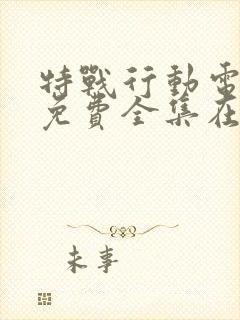 特戰行動電
免費全集在
未事